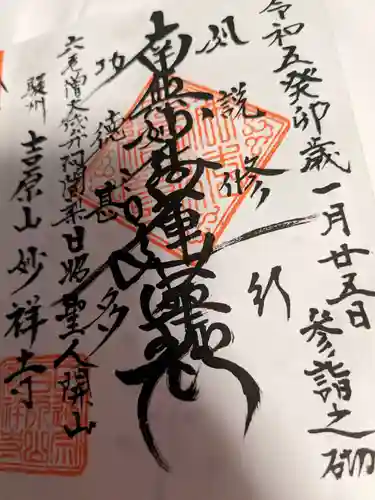 令和五癸卯歳一月廿五日参詣之砌
如説修行
南無妙法蓮華経
功徳甚多
六老僧大成弁阿闍梨日昭聖人開山
駿州 吉原山妙祥寺